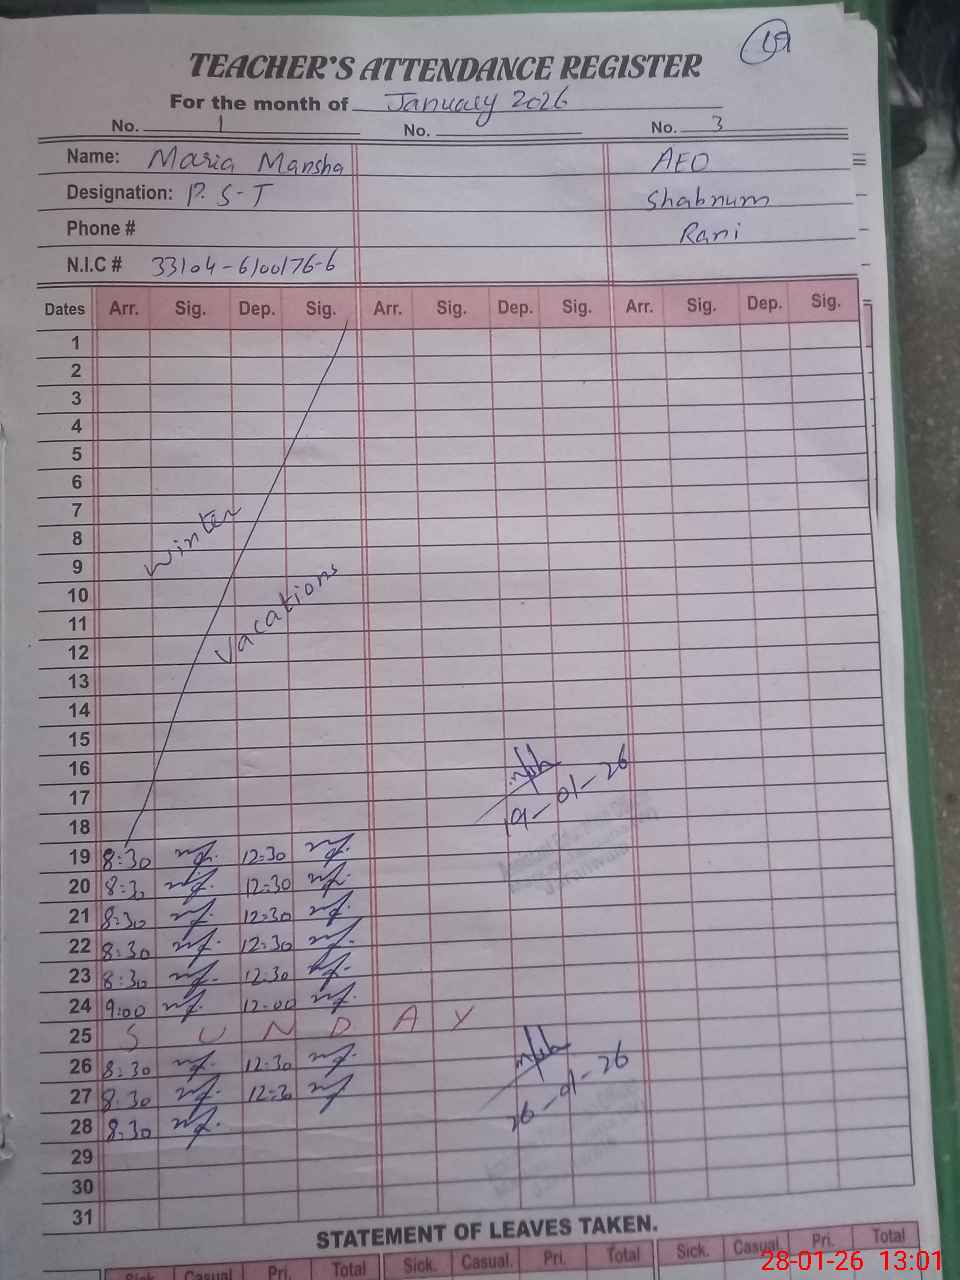 19
TEACHER'S ATTENDANCE REGISTER
For the month of January 2026
No. 1 No. No. 3
Name: Maria Mansha AEO
Designation: P.S-T Shabnum
Phone # Rani
N.I.C # 33104-6100176-6
Dates Arr. Sig. Dep. Sig. Arr. Sig. Dep. Sig. Arr. Sig. Dep. Sig.
1
2
3
4
5
6
7
8
Winter
9
10
11
Vacations
12
13
14
15
16
17
19-01-26
18
19 8:30 12:30
20 8:30 12:30
21 8:30 12:30
22 8:30 12:30
23 8:30 12:30
24 9:00 12:00
25 SUNDAY
26 8:30 12:30
27 8:30 12:30
26-01-26
28 8:30
29
30
31
STATEMENT OF LEAVES TAKEN.
Sick. Casual. Pri. Total Sick. Casual. Pri. Total Sick. Casual. Pri. Total
28-01-26 13:01